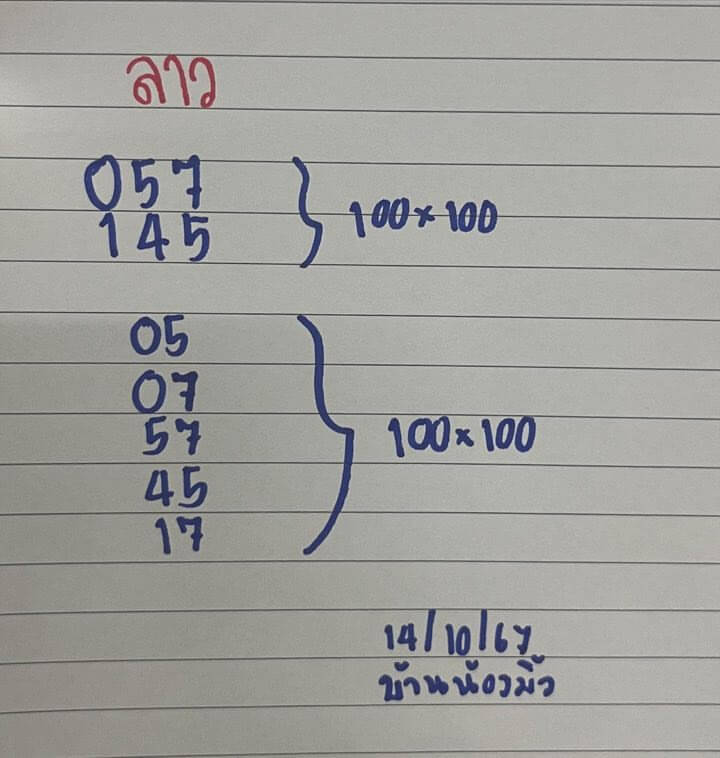 ลาว
057
145
100×100
05
07
57
45
17
100×100
14/10/67
บ้านน้องมิ้ว